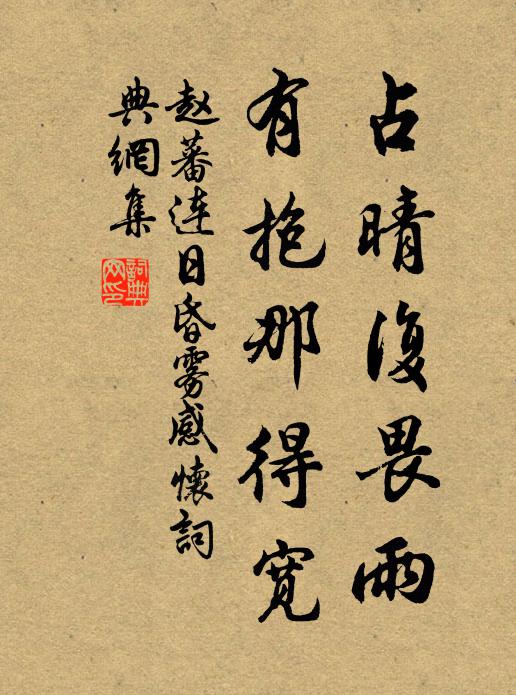 占晴復畏雨
有抱那得寬
赵蕃連日昏霧感懷詞
典網集
詞典
网印